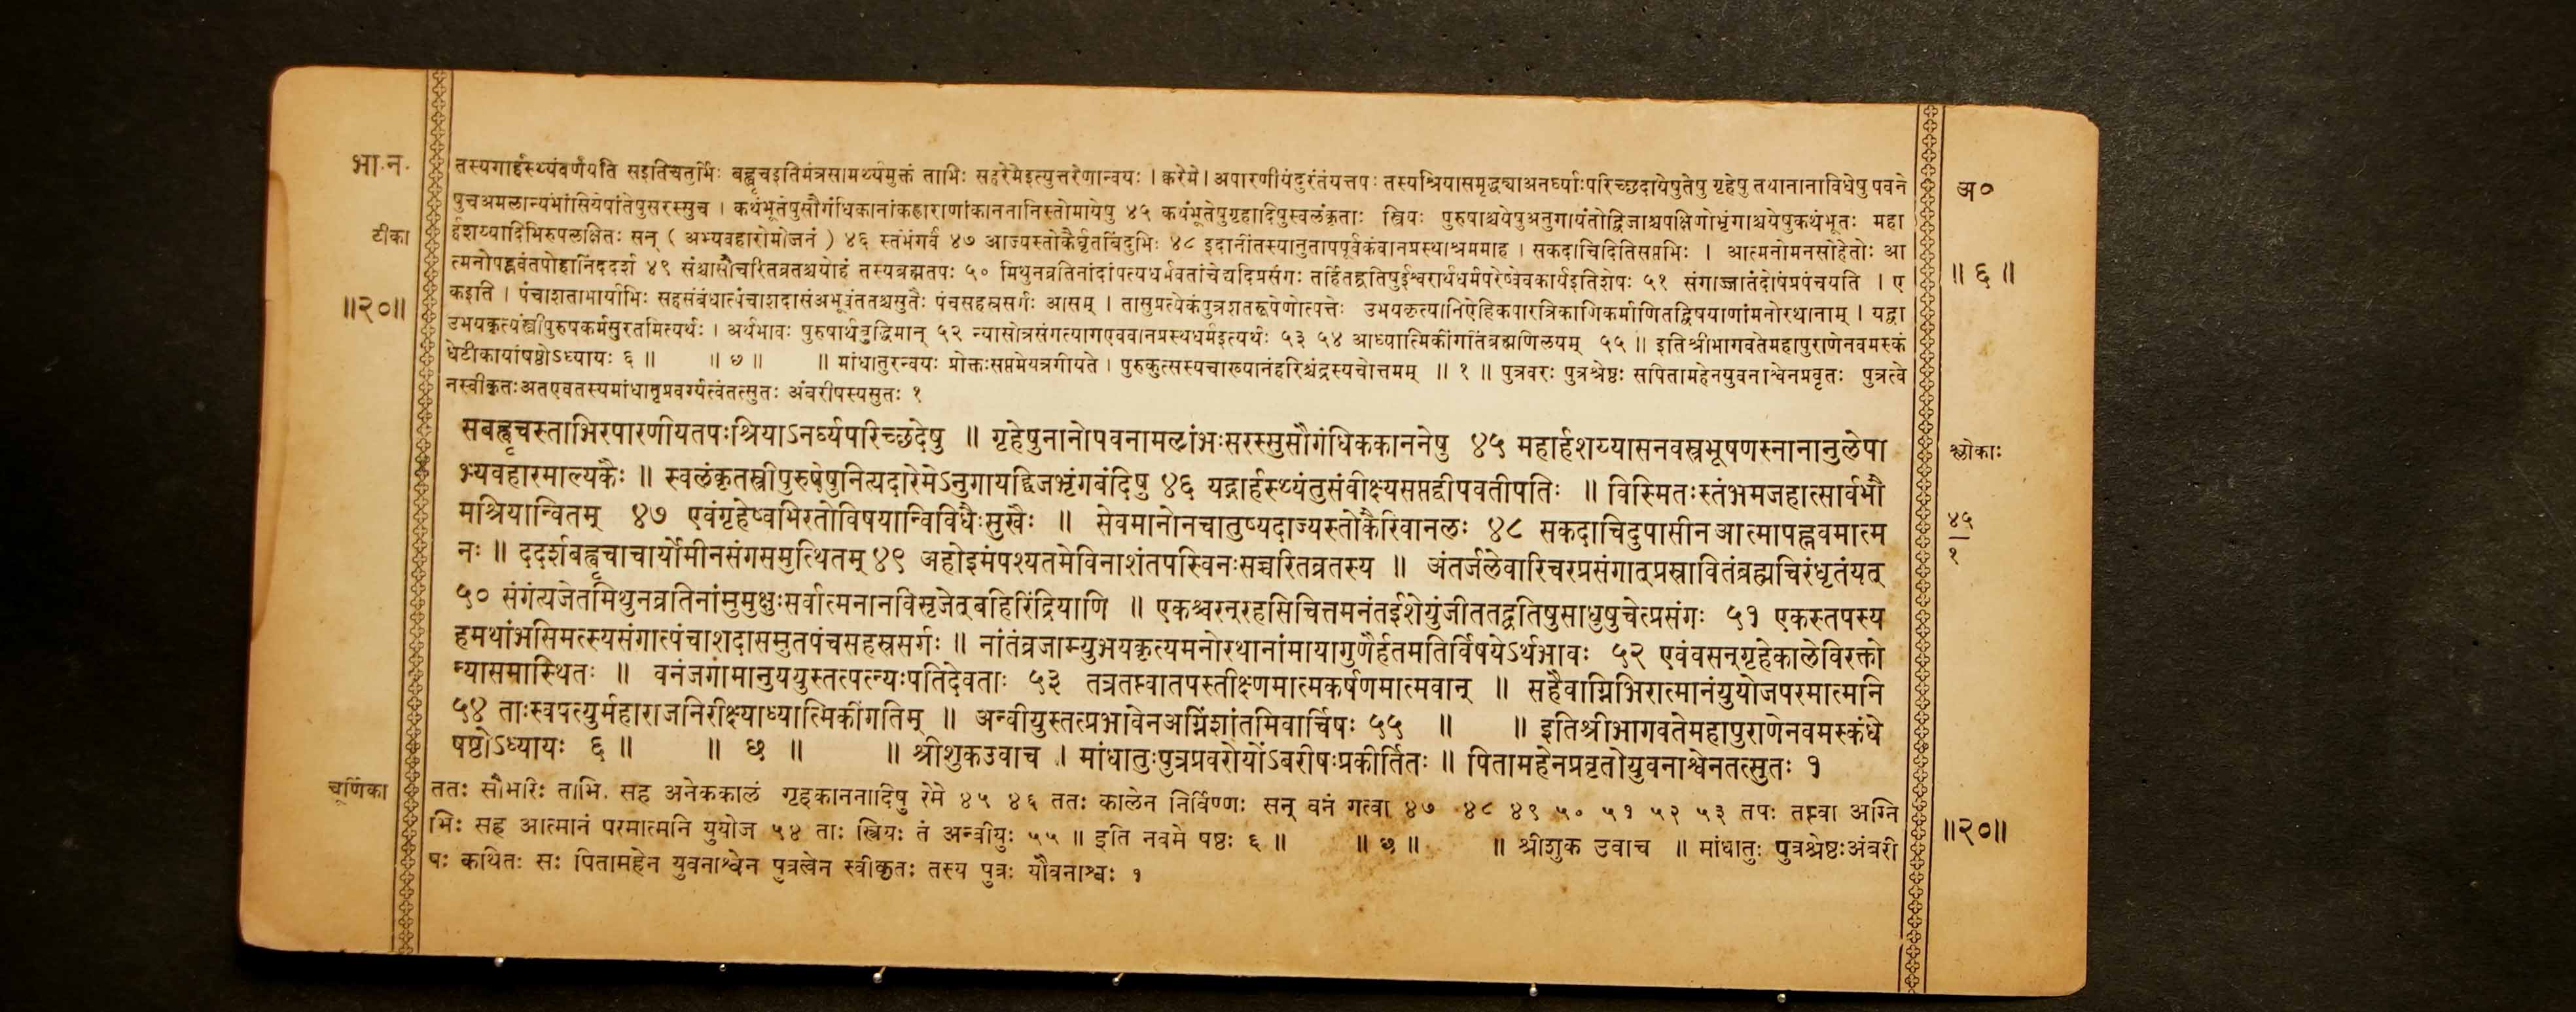 भा.न.
तस्यगार्हस्थ्यंवर्णयति सइतिचतुर्भिः बह्वृचइतिमंत्रसामर्थ्यमुक्तं ताभिः सहरेमेइत्युत्तरेणान्वयः । क्वरेमे । अपारणीयंदुरंतंयत्तपः तस्यश्रियासमृद्ध्याअनर्घ्याःपरिच्छदायेषुतेषु गृहेषु तथानानाविधेषु पवने
षुचअमलान्यंभांसियेषांतेषुसरस्सुच । कथंभूतेषुसौगंधिकानांकह्लाराणांकाननानिस्तोमायेषु ४५ कथंभूतेषुगृहादिषुस्वलंकृताः स्त्रियः पुरुषाश्चयेषुअनुगायंतोद्विजाश्चपक्षिणोभृंगाश्चयेषुकथंभूतः महा
र्हशय्यादिभिरुपलक्षितः सन् ( अभ्यवहारोभोजनं ) ४६ स्तंभंगर्वं ४७ आज्यस्तोकैर्घृतबिंदुभिः ४८ इदानींतस्यानुतापपूर्वकंवानप्रस्थाश्रममाह । सकदाचिदितिसप्तभिः । आत्मनोमनसोहेतोः आ
त्मनोपह्नवंतपोहानिंददर्श ४९ संश्चासौचरितव्रतश्चयोहं तस्यब्रह्मतपः ५० मिथुनव्रतिनांदांपत्यधर्मवतांचेद्यदिप्रसंगः तर्हितद्व्रतिषुईश्वरार्थधर्मपरेष्वेवकार्यइतिशेषः ५१ संगाज्जातंदोषंप्रपंचयति । ए
कइति । पंचाशताभार्याभिः सहसंबंधात्पंचाशदासंअभूवंततश्चसुतैः पंचसहस्रसर्गः आसम् । तासुप्रत्येकंपुत्रशतरूपेणोत्पत्तेः उभयकृत्यानिऐहिकपारत्रिकाणिकर्माणितद्विषयाणांमनोरथानाम् । यद्वा
उभयकृत्यंस्त्रीपुरुषकर्मसुरतमित्यर्थः । अर्थभावः पुरुषार्थबुद्धिमान् ५२ न्यासोत्रसंगत्यागएववानप्रस्थधर्मइत्यर्थः ५३ ५४ आध्यात्मिकींगतिंब्रह्मणिलयम् ५५ ॥ इतिश्रीभागवतेमहापुराणेनवमस्कं
धेटीकायांषष्ठोऽध्यायः ६ ॥ ॥ ७ ॥ ॥ मांधातुरन्वयः प्रोक्तःसप्तमेयत्रगीयते । पुरुकुत्सस्यचाख्यानंहरिश्चंद्रस्यचोत्तमम् ॥ १ ॥ पुत्रवरः पुत्रश्रेष्ठः सपितामहेनयुवनाश्वेनप्रवृतः पुत्रत्वे
नस्वीकृतःअतएवतस्यमांधातृप्रवर्ग्यत्वंतत्सुतः अंबरीषस्यसुतः १
टीका
॥२०॥
अ०
॥ ६ ॥
सबह्वृचस्ताभिरपारणीयतपःश्रियाऽनर्घ्यपरिच्छदेषु ॥ गृहेषुनानोपवनामलांभःसरस्सुसौगंधिककाननेषु ४५ महार्हशय्यासनवस्त्रभूषणस्नानानुलेपा
भ्यवहारमाल्यकैः ॥ स्वलंकृतस्त्रीपुरुषेषुनित्यदारेमेऽनुगायद्द्विजभृंगबंदिषु ४६ यद्गार्हस्थ्यंतुसंवीक्ष्यसप्तद्वीपवतीपतिः ॥ विस्मितःस्तंभमजहात्सार्वभौ
मश्रियान्वितम् ४७ एवंगृहेष्वभिरतोविषयान्विविधैःसुखैः ॥ सेवमानोनचातुष्यदाज्यस्तोकैरिवानलः ४८ सकदाचिदुपासीनआत्मापह्नवमात्म
नः ॥ ददर्शबह्वृचाचार्योमीनसंगसमुत्थितम् ४९ अहोइमंपश्यतमेविनाशंतपस्विनःसच्चरितव्रतस्य ॥ अंतर्जलेवारिचरप्रसंगात्प्रस्रावितंब्रह्मचिरंधृतंयत्
५० संगंत्यजेतमिथुनव्रतिनांमुमुक्षुःसर्वात्मनानविसृजेद्बहिरिंद्रियाणि ॥ एकश्चरन्रहसिचित्तमनंतईशेयुंजीततद्व्रतिषुसाधुषुचेत्प्रसंगः ५१ एकस्तपस्य
हमथांभसिमत्स्यसंगात्पंचाशदासमुतपंचसहस्रसर्गः ॥ नांतंव्रजाम्युभयकृत्यमनोरथानांमायागुणैर्हतमतिर्विषयेऽर्थभावः ५२ एवंवसन्गृहेकालेविरक्तो
न्यासमास्थितः ॥ वनंजगामानुययुस्तत्पत्न्यःपतिदेवताः ५३ तत्रतप्त्वातपस्तीक्ष्णमात्मकर्षणमात्मवान् ॥ सहैवाग्निभिरात्मानंयुयोजपरमात्मनि
५४ ताःस्वपत्युर्महाराजनिरीक्ष्याध्यात्मिकींगतिम् ॥ अन्वीयुस्तत्प्रभावेनअग्निंशांतमिवार्चिषः ५५ ॥ ॥ इतिश्रीभागवतेमहापुराणेनवमस्कंधे
षष्ठोऽध्यायः ६ ॥ ॥ छ ॥ ॥ श्रीशुकउवाच । मांधातुःपुत्रप्रवरोयोंऽबरीषःप्रकीर्तितः ॥ पितामहेनप्रवृतोयुवनाश्वेनतत्सुतः १
श्लोकाः
४५
१
चूर्णिका
ततः सौभरिः ताभिः सह अनेककालं गृहकाननादिषु रेमे ४५ ४६ ततः कालेन निर्विण्णः सन् वनं गत्वा ४७ ४८ ४९ ५० ५१ ५२ ५३ तपः तप्त्वा अग्नि
भिः सह आत्मानं परमात्मनि युयोज ५४ ताः स्त्रियः तं अन्वीयुः ५५ ॥ इति नवमे षष्ठः ६ ॥ ॥ छ ॥ ॥ श्रीशुक उवाच ॥ मांधातुः पुत्रश्रेष्ठःअंबरी
षः कथितः सः पितामहेन युवनाश्वेन पुत्रत्वेन स्वीकृतः तस्य पुत्रः यौवनाश्वः १
॥२०॥